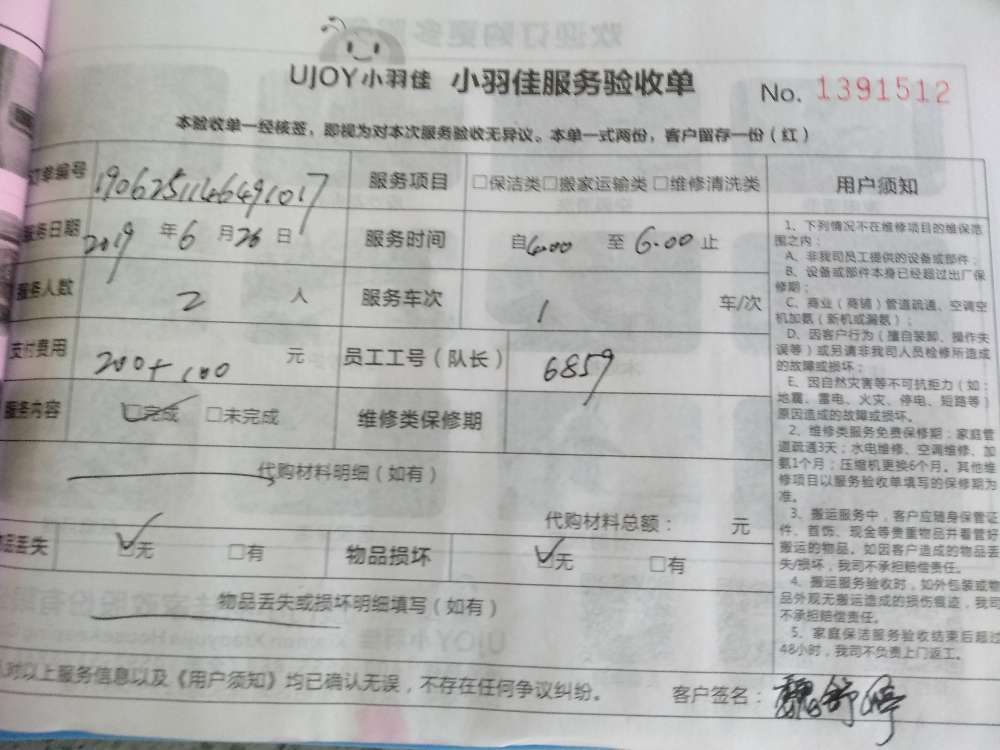 UJOY小羽佳 小羽佳服务验收单 No. 1391512
本验收单一经核签，即视为对本次服务验收无异议。本单一式两份，客户留存一份（红）
订单编号 1906251146491017 服务项目 □保洁类□搬家运输类□维修清洗类 用户须知
服务日期 2019 年 6 月 26 日 服务时间 自6.00 至 6.00 止
服务人数 2 人 服务车次 1 车/次
支付费用 200+100 元 员工工号（队长） 6859
服务内容 □完成 □未完成 维修类保修期
代购材料明细（如有）
代购材料总额： 元
物品丢失 □无 □有 物品损坏 □无 □有
物品丢失或损坏明细填写（如有）
对以上服务信息以及《用户须知》均已确认无误，不存在任何争议纠纷。 客户签名：魏舒婷
1、下列情况不在维修项目的维保范
围之内：
A、非我司员工提供的设备或部件；
B、设备或部件本身已经超过出厂保
修期；
C、商业（商铺）管道疏通、空调空
机加氨（新机或漏氨）；
D、因客户行为（擅自装卸、操作失
误等）或另请非我司人员检修所造成
的故障或损坏；
E、因自然灾害等不可抗拒力（如：
地震、雷电、火灾、停电、短路等）
原因造成的故障或损坏。
2、维修类服务免费保修期：家庭管
道疏通3天；水电维修、空调维修、加
氨1个月；压缩机更换6个月。其他维
修项目以服务验收单填写的保修期为
准。
3、搬运服务中，客户应随身保管证
件、首饰、现金等贵重物品并看管好
搬运的物品，如因客户造成的物品丢
失/损坏，我司不承担赔偿责任。
4、搬运服务验收时，如外包装或物
品外观无搬运造成的损伤痕迹，我司
不承担赔偿责任。
5、家庭保洁服务验收结束后超过
48小时，我司不负责上门返工。